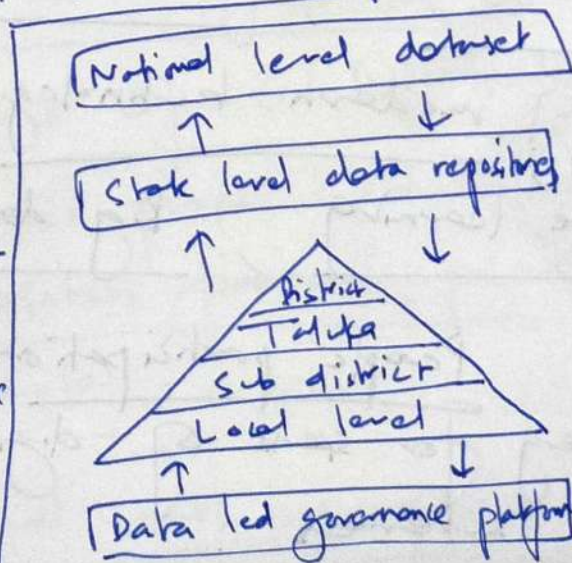 National level dataset
State level data repositories
District
Taluka
Sub district
Local level
Data led governance platform